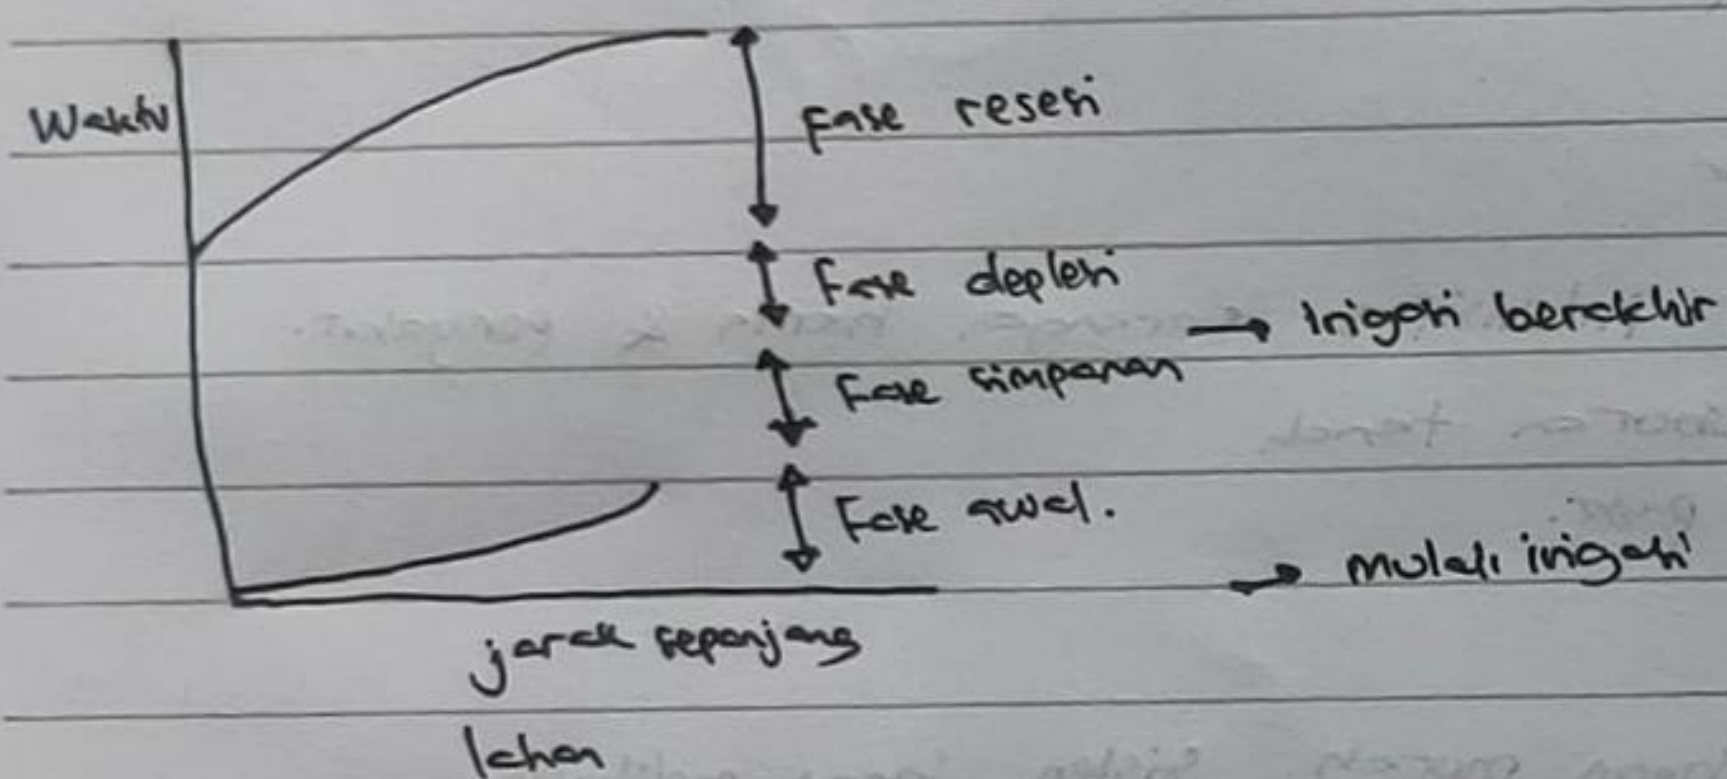 Waktu
Fase resesi
Fase deplesi
→ Irigasi berakhir
Fase simpanan
Fase awal.
→ mulai irigasi
jarak sepanjang
lahan